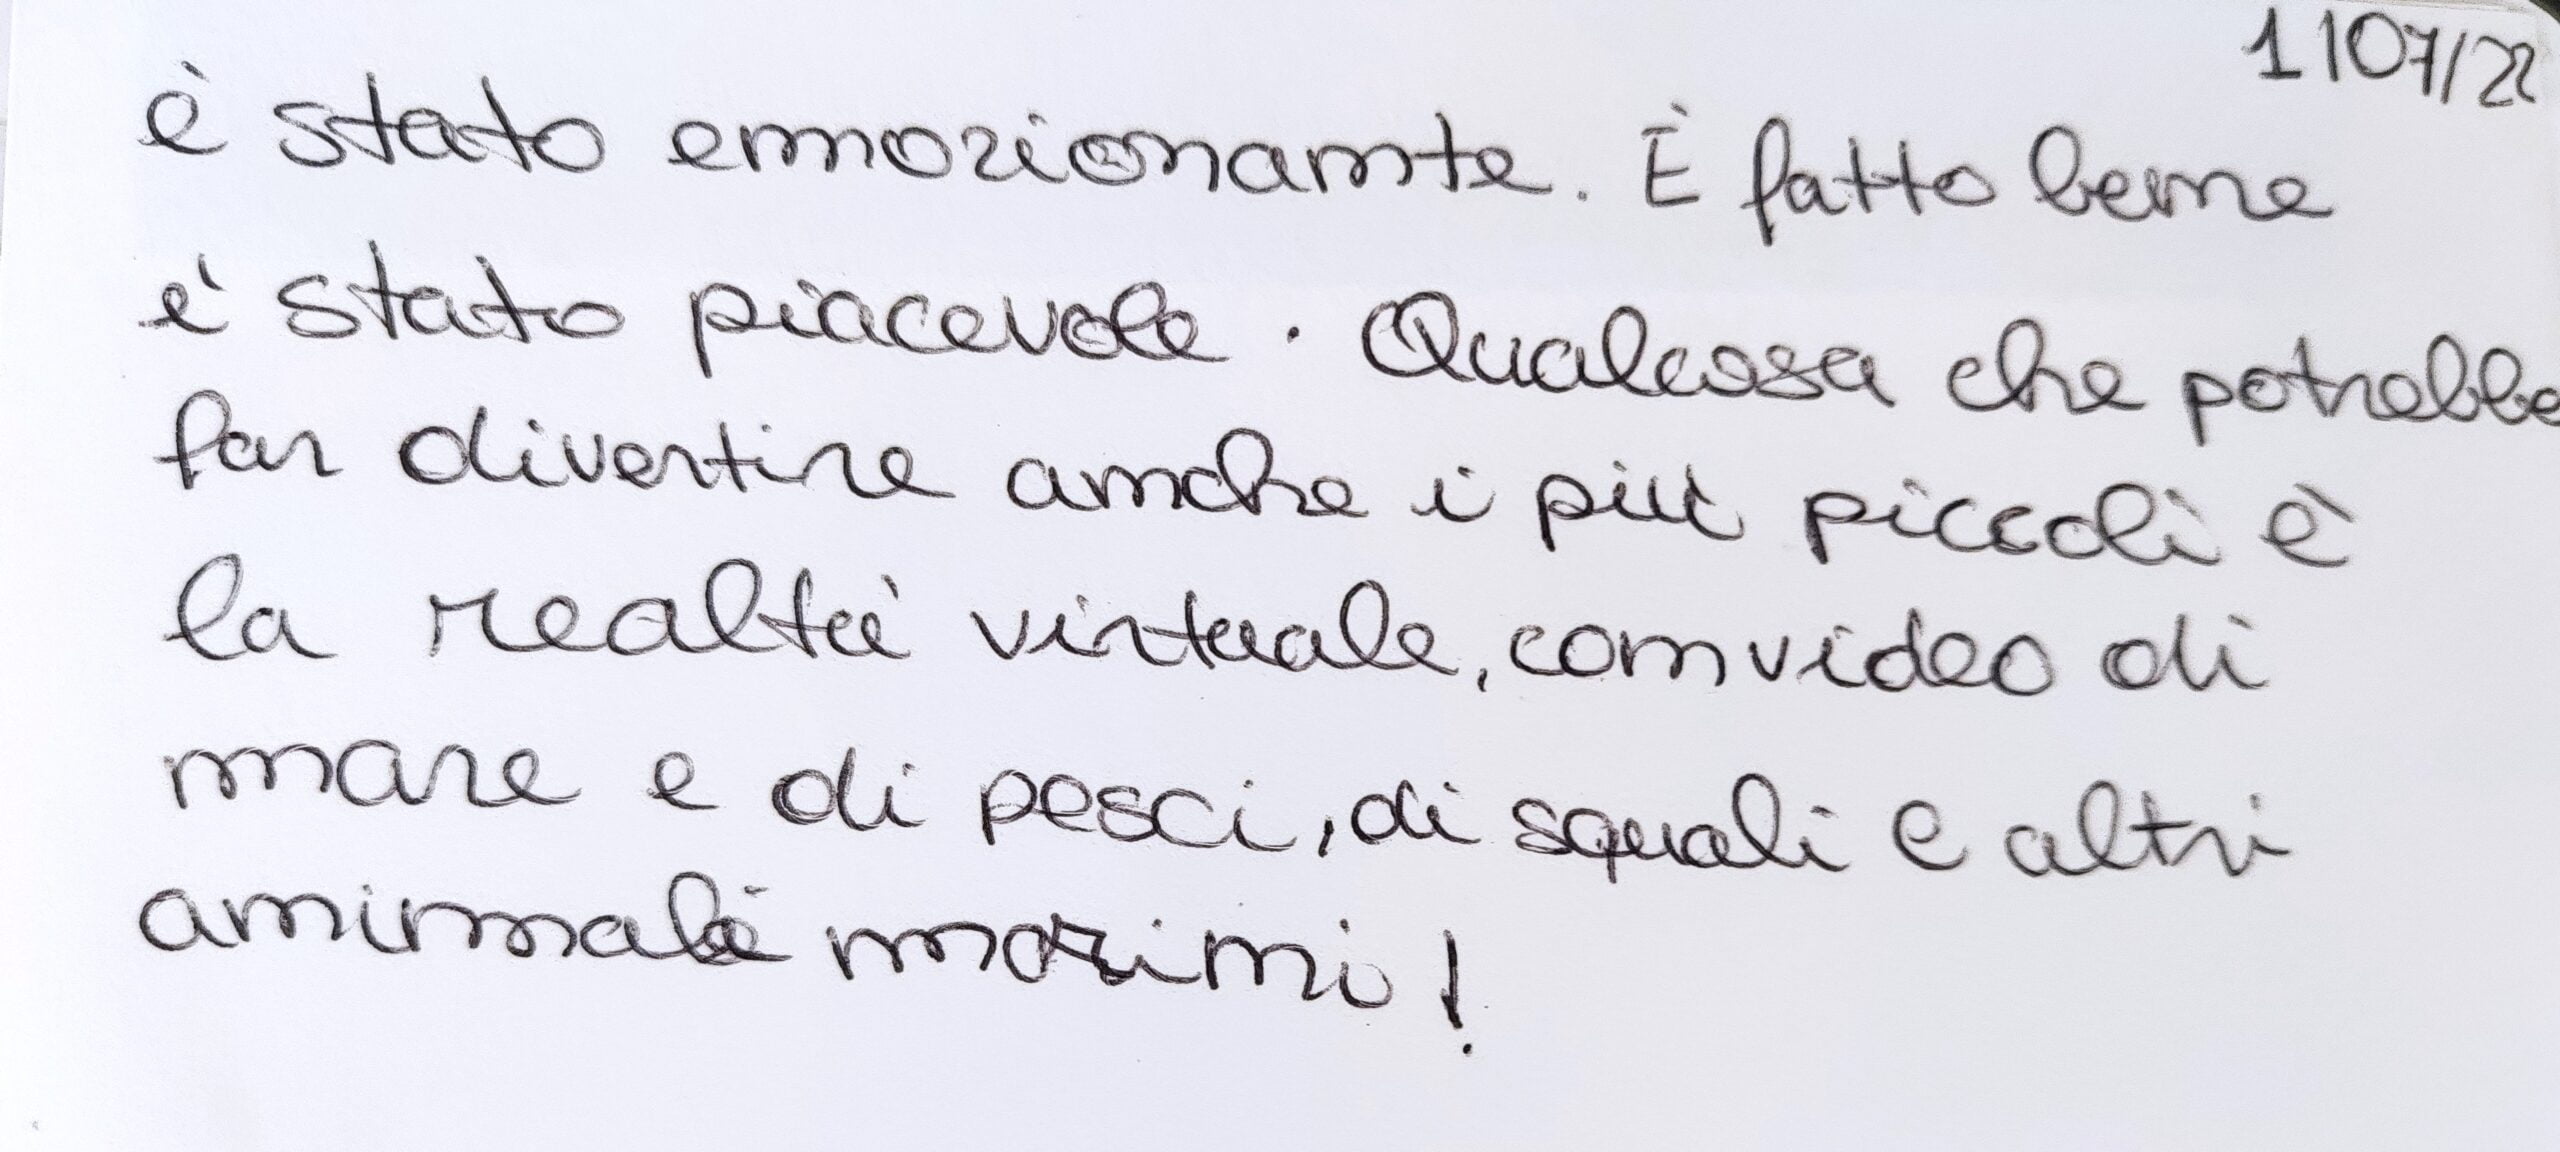 1/07/22
è stato emozionante. È fatto bene
e' stato piacevole. Qualcosa che potrebbe
far divertire anche i più piccoli è
la realtà virtuale, con video di
mare e di pesci, di squali e altri
animali marini!